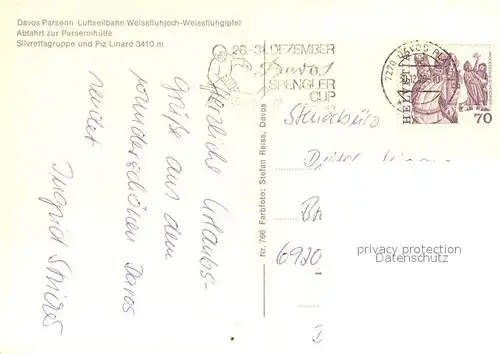 Davos Parsenn Luftseilbahn Weissfluhjoch-Weissfluhgipfel
Abfahrt zur Parsennhütte
Silvrettagruppe und Piz Linard 3410 m
26.-31. DEZEMBER
Davos
SPENGLER
CUP
7270 DAVOS PLATZ
HELVETIA
70
Herzliche Urlaubs-
grüße aus dem
wunderschönen Davos
sendet
Ingrid
Nr. 766 Farbfoto: Stefan Reiss, Davos
6920
privacy protection
Datenschutz